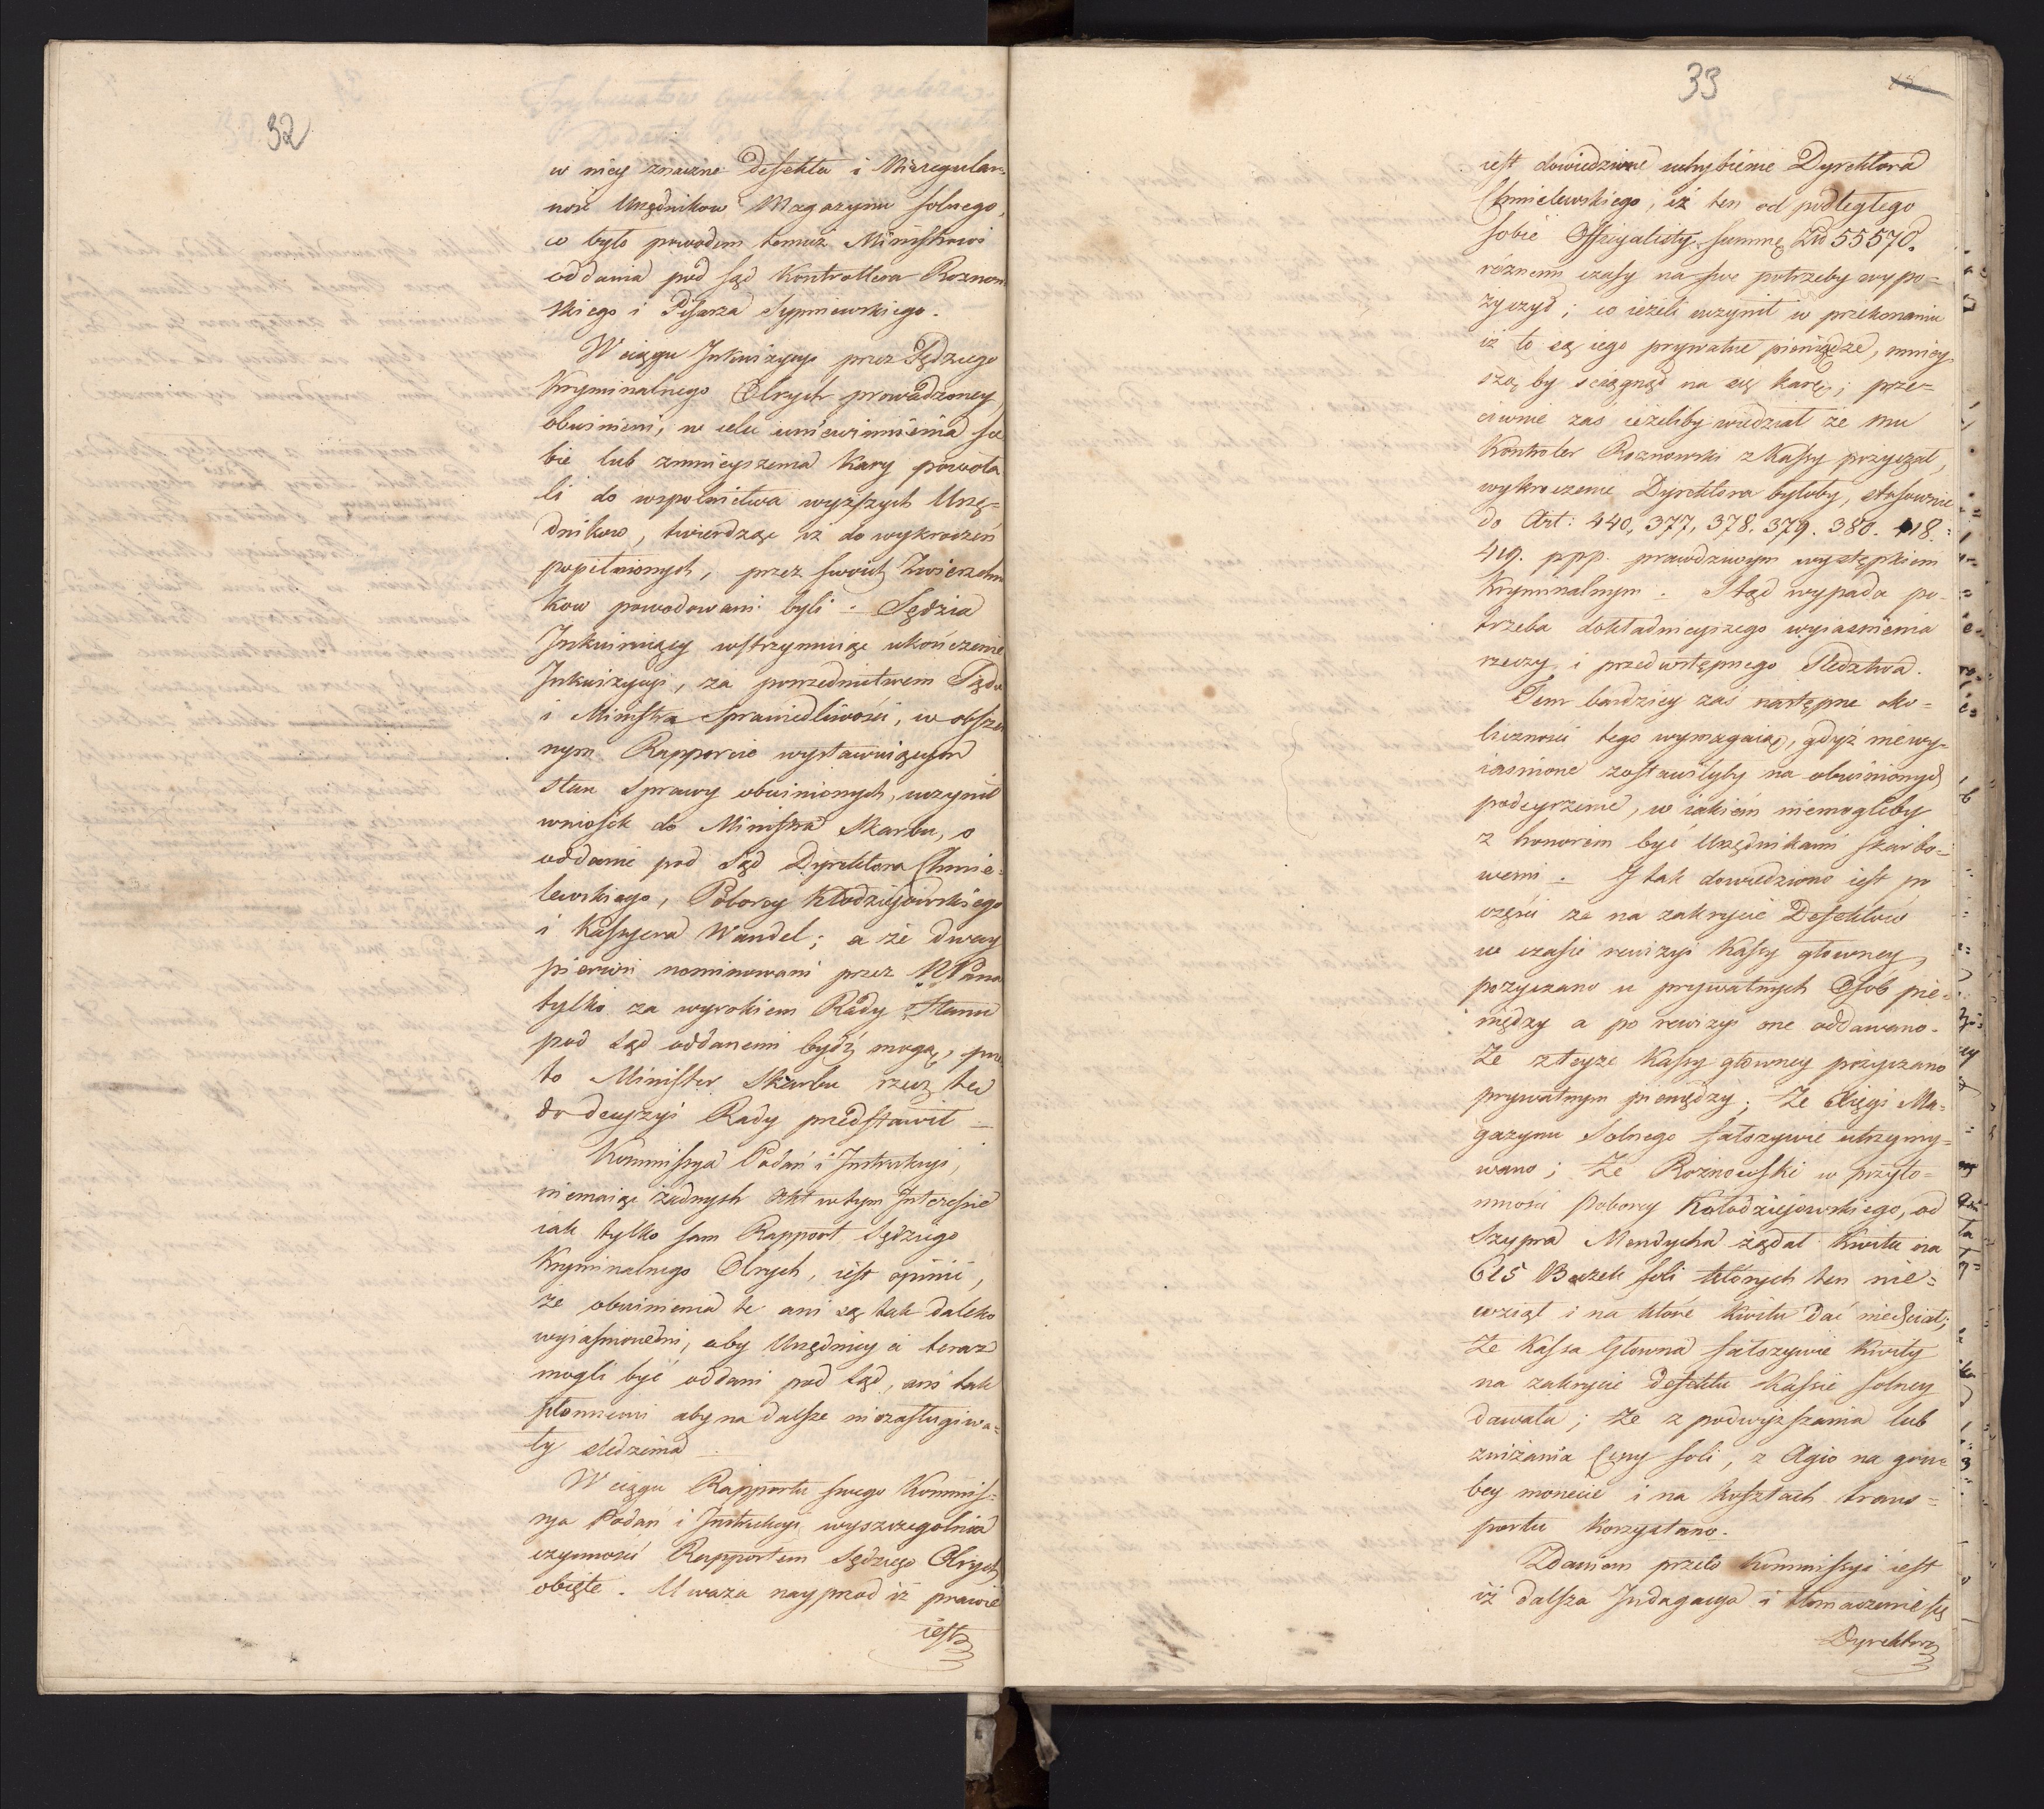 32
w niey znaczne Defekta i Nieregular-
ność Urzędnikow Magazynu solnego,
co było powodem temuż Ministrowi
oddania pod sąd Kontrollera Roznow
skiego i Pisarza Sypniewskiego.
W ciągu Inkwizycyi przez Sędziego
Kryminalnego Olrych prowadzoney
obwinieni, w celu uniewinnienia so
bie lub zmnieyszenia kary powoła
li do wspolnictwa wyższych Urzę-
dnikow, twierdząc iż do wykroczeń
popełnionych, przez swoich Zwierzchni
kow powodowani byli. Sędzia
Inkwiruiący wstrzymuiąc ukończenie
Inkwizycyi, za posrzednictwem Sądu
i Ministra Sprawiedliwości, w obszer
nym Rapporcie wystawuiącym
stan Sprawy obwinionych, uczynił
wniosek do Ministra Skarbu, o
oddanie pod Sąd Dyrektora Chmie-
lewskiego, Poborcy Kłodziejowskiego
i Kassyera Wandel; a że dway
pierwsi nominowani przez N Pana
tylko za wyrokiem Rady Stanu
pod sąd oddanemi bydź mogą, prze
to Minister Skarbu rzecz tę
do decyzyi Rady przedstawił —
Kommissya Podań i Instrukcyi,
niemaiąc żadnych Akt w tym Interessie
iak tylko sam Rapport Sędziego
Kryminalnego Olrych, iest opinii,
że obwinienia te ani są tak daleko
wyiasnionemi, aby Urzędnicy ci teraz
mogli być oddani pod Sąd, ani tak
płonnemi aby na dalsze niezasługiwa-
ły sledzenia —
W ciągu Rapportu swego Kommis-
sya Podań i Instrukcyi wyszczegolnia
czynności Rapportem Sędziego Olrych
obięte. Uważa nayprzod iż prawie
iest
33
iest dowiedzione uchybienie Dyrektora
Chmielewskiego, iż ten od podległego
sobie Officyalisty summę Zł 55570.
roznemi czasy na swe potrzeby wypo-
życzył; co ieżeli uczynił w przekonaniu
iż to są iego prywatne pieniądze, mniey-
szą by sciągnął na się karę; prze-
ciwnie zaś ieżeliby wiedział że mu
Kontroler Roznowski z Kassy pożyczał,
wykroczenie Dyrektora byłoby, stosownie
do Art: 440, 377, 378. 379. 380. 418.
419. ppp. prawdziwym występkiem
Kryminalnym. Stąd wypada po-
trzeba dokładnieyszego wyiasnienia
rzeczy i przedwstępnego Sledztwa.
Tem bardziey zaś następne oko-
liczności tego wymagaią, gdyż niewy-
iasnione zostawiłyby na obwinionych
podeyrzenie, w iakiem niemogliby
z honorem być Urzędnikami skarbo-
wemi. I tak dowiedziono iest po
części że na zakrycie Defektow
w czasie rewizyi Kassy głowney,
pożyczano u prywatnych Osób pie-
niędzy a po rewizyi one oddawano.
Że z teyże Kassy głowney pożyczano
prywatnym pieniędzy; Że Xięgi Ma-
gazynu Solnego fałszywie utrzymy-
wano; Że Rożnowski w przyto-
mności Poborcy Kołodziejowskiego, od
Szypra Mendycha żądał Kwitu na
615 Beczek soli których ten nie-
wziął i na które Kwitu dać niechciał;
Że Kassa Głowna fałszywie Kwity
na zakrycie defektu Kassie solney
dawała; Że z podwyższania lub
zniżania Ceny soli, z Agio na gru-
bey monecie i na kosztach trans-
portu korzystano.
Zdaniem przeto Kommissyi iest
iż dalsza Indagacya i tłomaczenie się
Dyrektora